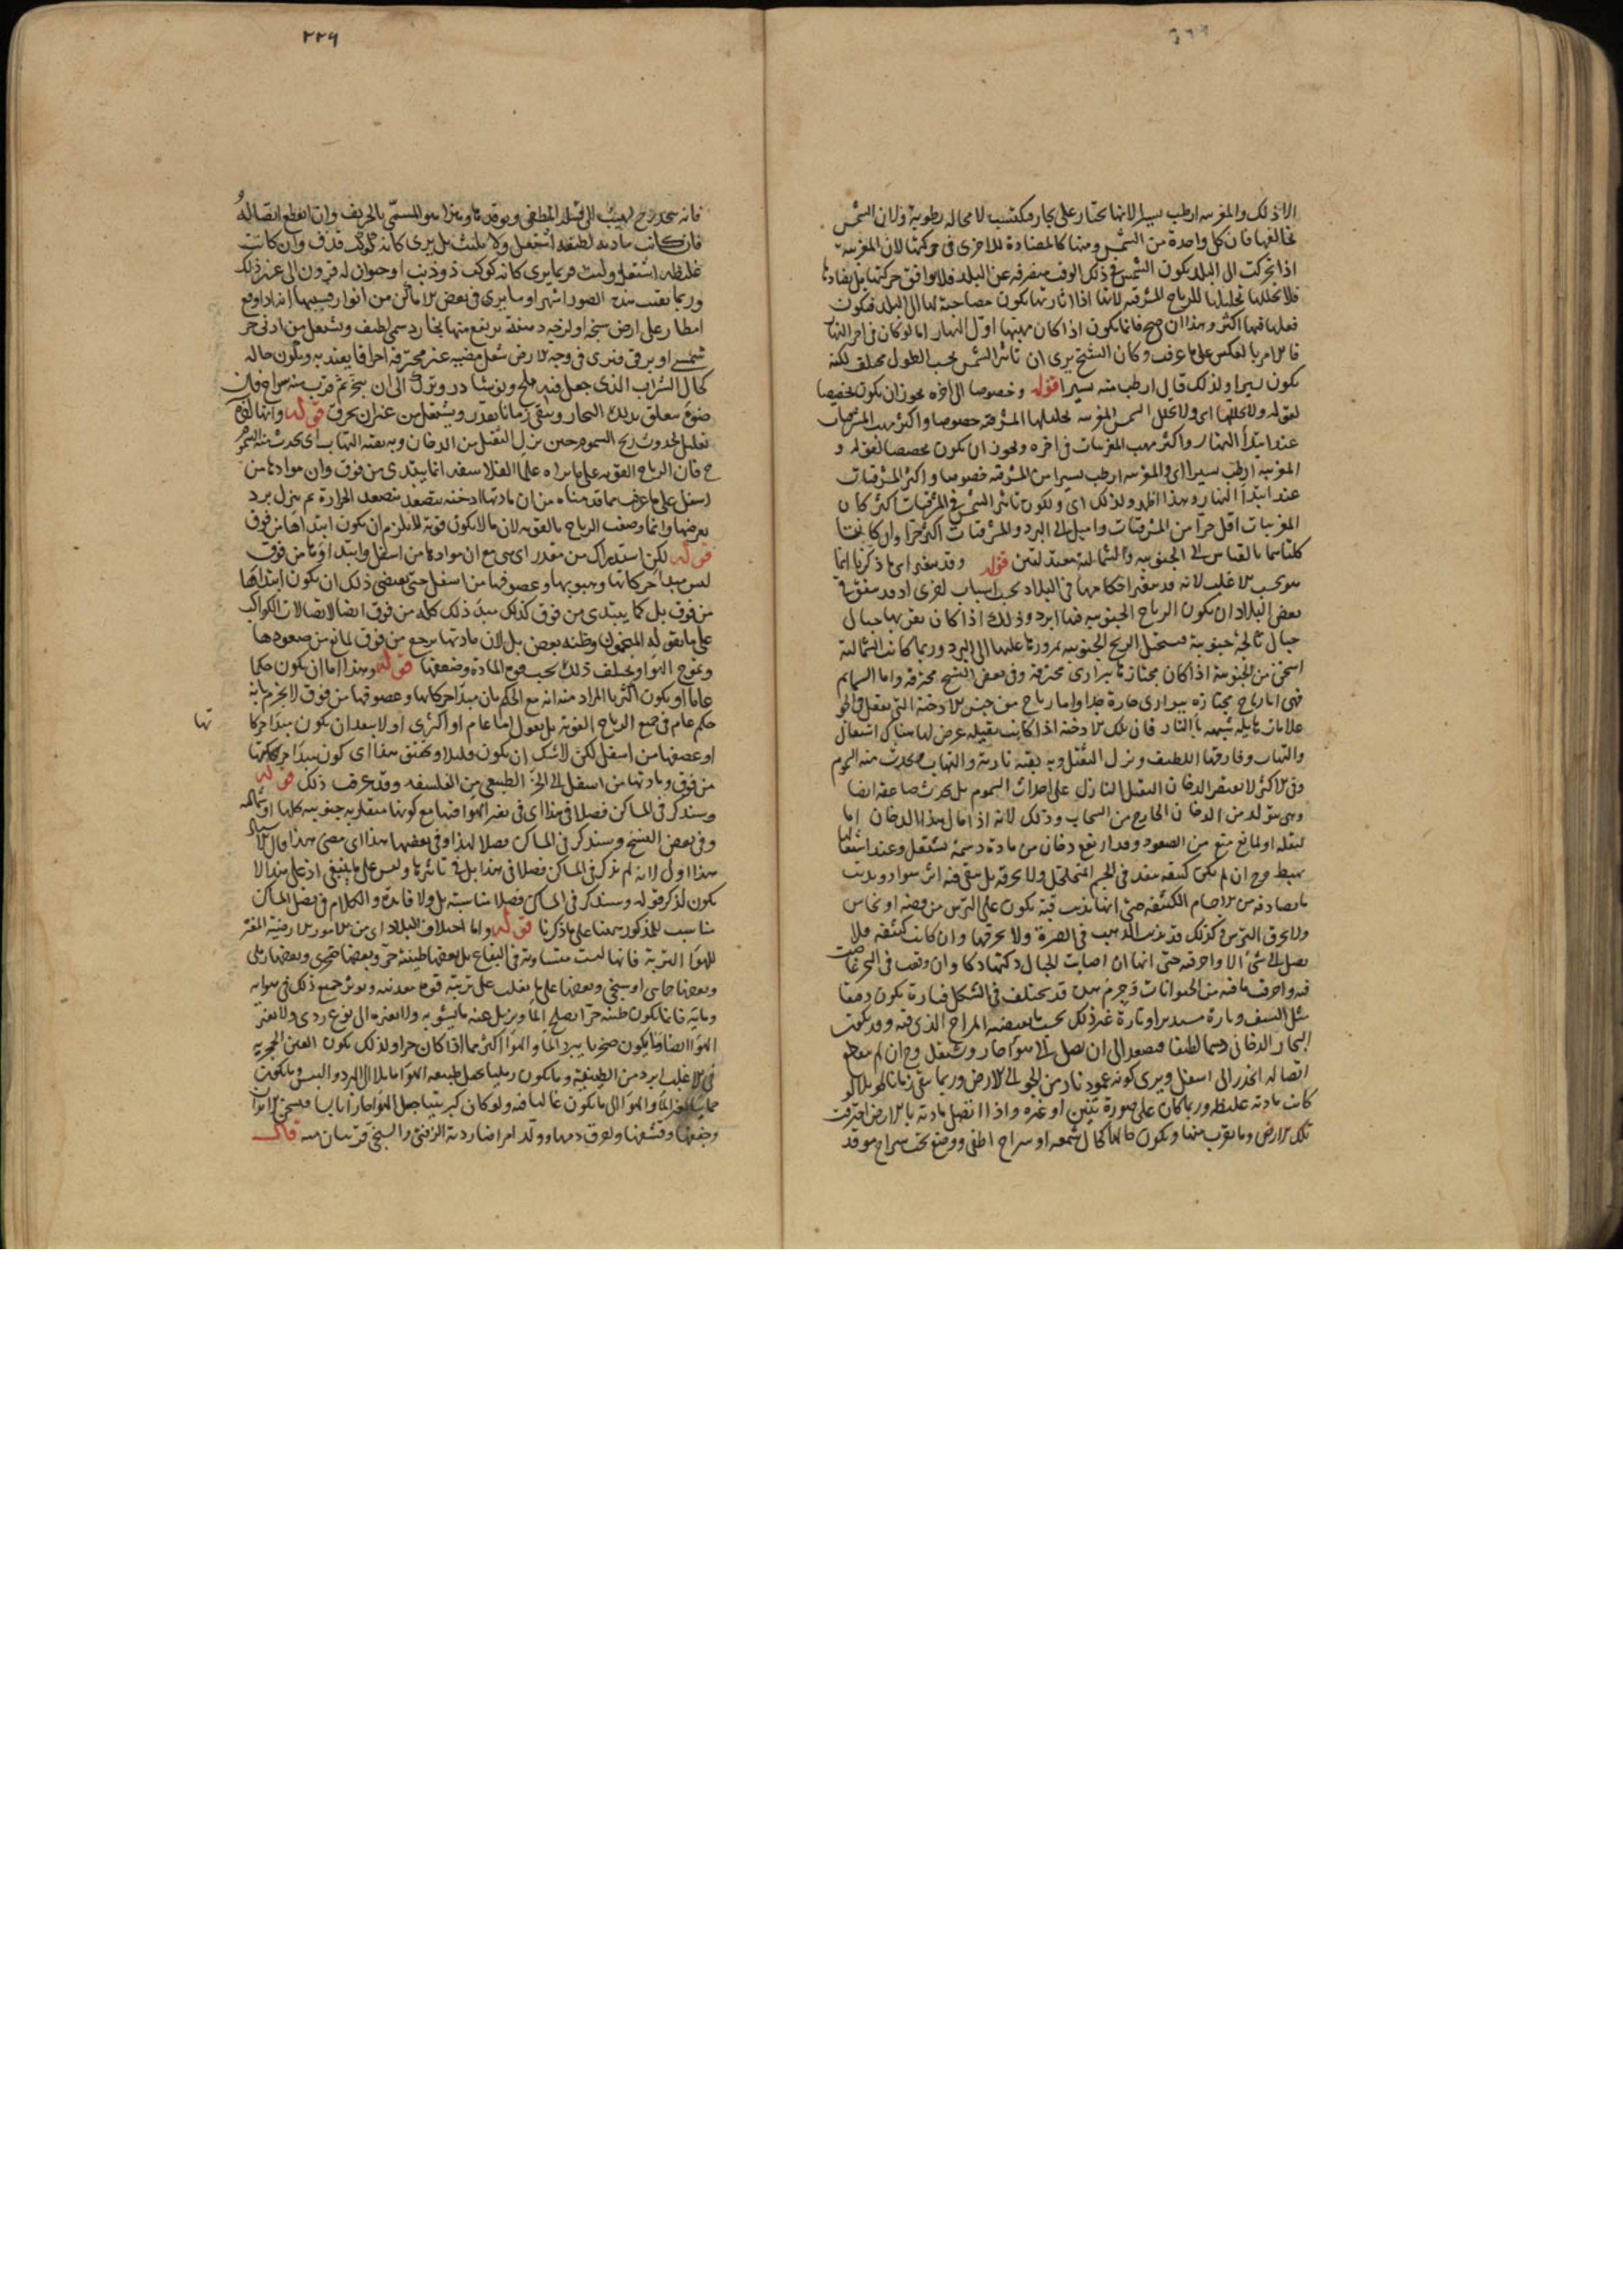 الا ذلك والمغربيه ارطب يسيرا لانها تجتاز على بحار فيكتسب لا محاله رطوبة ولان الشمس
تخالفها فان كل واحدة من الشمس ومنها كالمضادة للاخرى فى حركتها لان المغربية
اذا تحركت الى البلد يكون الشمس فى ذلك الوقت منصرفه عن البلد فلا يوافق حركتها بل يضادها
فلا تحللها تحليلها للرياح المشرقيه لانها اذا اثارتها يكون مصاحبة لها الى البلد فيكون
فعلها فيها اكثر وهذا ان صح فانما يكون اذا كان مهبها اول النهار اما لو كان فى اخر النهار
فالامر بالعكس على ما عرفت وكان الشيخ يرى ان تاثير الشمس بحسب الطول مختلف لكنه
يكون يسيرا ولذلك قال ارطب منه يسيرا قوله وخصوصا الى اخره يجوز ان يكون تخصيصا
لقوله ولا تحللها اى ولا تحلل الشمس المغربيه تحليلها المشرقية خصوصا واكثر مهب المشرقيات
عند ابتدأ النهار واكثر مهب المغربيات فى اخره ويجوز ان يكون مخصصا لقوله و
المغربية ارطب يسيرا اى والمغربيه ارطب يسيرا من المشرقيه خصوصا واكثر المشرقيات
عند ابتدأ النهار وهذا اظهر ولذلك اى ولكون تاثير الشمس فى المشرقيات اكثر كان
المغربيات اقل حرا من المشرقيات واميل الى البرد والمشرقيات اكثر حرا وان كانتا
كلتاهما بالقياس الى الجنوبيه والشماليه معتدلتين قوله وقد يتغير اى ما ذكرنا انما
هو بحسب الاغلب لانه قد يتغير احكامها فى البلاد بحسب اسباب اخرى اذ قد يتفق فى
بعض البلاد ان يكون الرياح الجنوبيه فيها ابرد وذلك اذا كان بقربها جبال
جبال ثالجة جنوبية فيستحيل الريح الجنوبيه بمرورها عليها الى البرد وربما كانت الشمالية
اسخن من الجنوبية اذا كان مجتازها ببرارى محترقه وفى بعض النسخ محرقه واما السمايم
فهى اما رياح مجتازة ببرارى حارة جدا واما رياح من جنس الادخنة التى يفعل فى الجو
علامات هايله شبيهه بالنار فان تلك الادخنة اذا كانت ثقيله عرض لها هناك اشتعال
والتهاب وفارقها اللطيف ونزل الثقيل وبه بقيه نارية والتهاب فيحدث منه السموم
وفى الاكثر لا يقتصر الدخان الثقيل النازل على احداث السموم بل يحدث صاعقه ايضا
وهى يتولد من الدخان الخارج من السحاب وذلك لانه اذا مال هذا الدخان اما
لثقله او لمانع منع من الصعود وقد ارتفع دخان من مادة دسمة يشتعل وعند اشتعالها
يهبط وح ان لم يكن كثيفه ينفذ فى الجسم المتخلخل ولا يحرقه بل يبقى فيه اثر سواد ويذيب
ما يصادفه من الاجسام الكثيفه حتى انها تذيب قبة يكون على الترس من فضه او نحاس
ولا يحرق الترس وكذلك قد تذيب الذهب فى الصرة ولا يحرقها وان كانت كثيفه فلا
يصل الى شئ الا واحرقته حتى انها ان اصابت الجبال دكتها دكا وان وقعت فى البحر غاصت
فيه واحرقت ما فيه من الحيوانات وجرم هذه قد يختلف فى الشكل فتارة يكون دقيقا
مثل السيف وتارة مستديرا وتارة غير ذلك بحسب ما يقتضيه المزاج الذى فيه وقد يكون
البخار الدخانى دسما لطيفا فيصعد الى ان يصل الى هواء حار ويشتعل وح ان لم ينقطع
اتصاله انحدر الى اسفل ويرى كونه عمود نار من الجو الى الارض وربما يبقى زمانا طويلا لو
كانت مادته غليظه وربما كان على صورة تنين او غيره واذا اتصل مادته بالارض احترقت
تلك الارض وما يقرب منها ويكون حالها كحال شمعه او سراج اطفئ ووضع تحت سراج موقد
٢٢٦
فانه ينحدر ح لهيب الى فتيلة المطفى ويوقده وهذا هو المسمى بالحريق وان انقطع اتصاله
فان كانت مادته لطيفة اشتعل ولا يلبث بل يرى كانه كوكب قذف وان كانت
غليظه اشتعل ولبث فربما يرى كانه كوكب ذو ذنب او حيوان له قرون الى غير ذلك
وربما بقيت هذه الصور اشهرا وما يرى فى بعض الاماكن من انوار فسببها انه اذا وقع
امطار على ارض سبخه او لزجه دهنه يرتفع منها بخار دسم لطيف ويشتعل من ادنى حر
شمسى او برقى فيرى فى وجه الارض شعل مضيئه غير محرقه احراقا يعتد به ويكون حاله
كحال الشراب الذى جعل فيه ملح ونوشادر وترك الى ان يتبخر ثم قرب منه سراج فان
ضوءه يتعلق بذلك البخار ويبقى زمانا بقدر ويشتعل من غير ان يحرق قوله وانها لقوم
تعليل لحدوث ريح السموم حين نزل الثقيل من الدخان وبه بقيه التهاب اى يحدث منه السموم
ح فان الرياح القويه على ما يراه علما الفلاسفه انما يبتدى من فوق وان موادها من
اسفل على ما عرفت مما قدمناه من ان مادتها ادخنه يتصعد بتصعيد الحرارة ثم ينزل ببرد
يعرضها وانما وصف الرياح بالقويه لان ما لا يكون قويه لا يلزم ان يكون ابتداها من فوق
قوله لكن استدراك من مقدر اى هى مع ان موادها من اسفل وابتداؤها من فوق
ليس مبدا حركاتها وهبوبها وعصوفها من اسفل حتى يقتضى ذلك ان يكون ابتداها
من فوق بل كما يبتدى من فوق كذلك مبدء ذلك كله من فوق ايضا لاتصالات الكواكب
على ما يقوله المنجمون وظنه بعض بل لان مادتها يرجع من فوق لمانع من صعودها
ويموج الهواء ويختلف ذلك بحسب قوة المادة وضعفها قوله وهذا اما ان يكون حكما
عاما او يكون اكثريا المراد منه انه مع الحكم بان مبدا حركاتها وعصوفها من فوق لا يجزم بانه
حكم عام فى جميع الرياح القويه بل يقول اما عام او اكثرى اذ لا يبعد ان يكون مبدا حركاتها
او عصفها من اسفل لكن لا شك ان يكون قليلا وتحقيق هذا اى كون مبدا حركاتها
من فوق ومادتها من اسفل الى الجزء الطبيعى من الفلسفه وقد عرفت ذلك قوله
وسنذكر فى المساكن فصلا فى هذا اى فى تغير الهواء فيها مع كونها متقاربه جنوبيه كلها او شماليه
وفى بعض النسخ وسنذكر فى المساكن فصلا لهذا وفى بعضها هذا اى مضى هذا وقال
هذا اولى لانه لم يذكر فى المساكن فصلا فى هذا بل فى تاثيرها وليس على ما ينبغى اذ على هذا لا
يكون لذكر قوله وسنذكر فى المساكن فصلا مناسبة بل ولا فائدة والكلام فى فصل المساكن
مناسب للمذكور ههنا على ما ذكرنا قوله واما اختلاف البلاد اى من الامور الارضية المغيرة
للهواء التربة فانها ليست متساوية فى البقاع بل بعضها طينه حر وبعضها صخرى وبعضها رملى
وبعضها حمائى او سبخى وبعضها على ما يغلب على تربته قوة معدنيه ويوثر جميع ذلك فى هوائه
ومائه فما يكون طينه حرا يصلح الماء ويزيل عنه ما يشوبه ولا يغيره الى نوع ردى ولا يغير
الهواء ايضا وما يكون صخريا يبرد الماء والهواء اكثر مما اذا كان حرا ولذلك يكون العين الحجريه
فى الاغلب ابرد من الطينيه وما يكون رمليا يجعل طبيعه الهواء مايلا الى البرد واليبس وما يكون
حمائيا يغير الماء والهواء الى ما يكون غالبا فيه ولو كان كبريتيا جعل الهواء حارا يابسا فيسخن الابدان
ويجففها ويقشفها ويحرق دمها ويولد امراضا ردية الزفتى والسبخى قريبان منه قال
تها